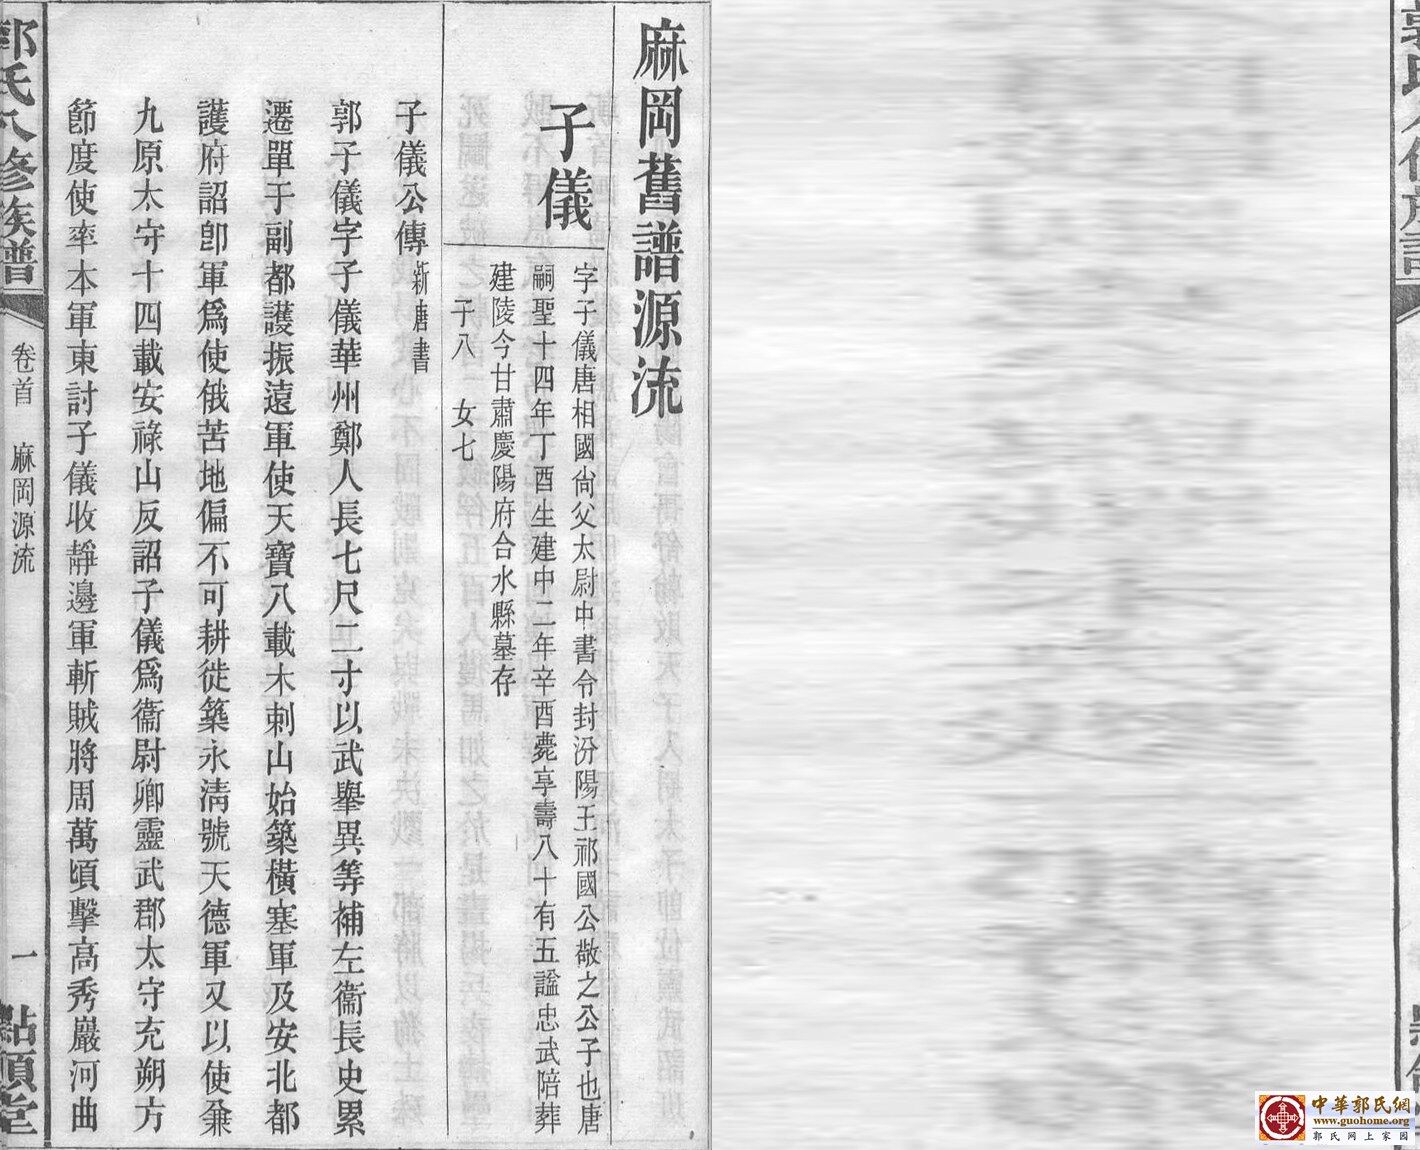 麻岡舊譜源流
子儀
字子儀唐相國尙父太尉中書令封汾陽王祁國公敬之公子也唐
嗣聖十四年丁酉生建中二年辛酉薨享壽八十有五謚忠武陪葬
建陵今甘肅慶陽府合水縣墓存
子八 女七
子儀公傳 新唐書
郭子儀字子儀華州鄭人長七尺二寸以武舉異等補左衞長史累
遷單于副都護振遠軍使天寶八載木剌山始築橫塞軍及安北都
護府詔卽軍爲使俄苦地偏不可耕徙築永清號天德軍又以使兼
九原太守十四載安祿山反詔子儀爲衞尉卿靈武郡太守充朔方
節度使率本軍東討子儀收靜邊軍斬賊將周萬頃擊高秀巖河曲
郭氏八修族譜
卷首 麻岡源流
一
點頷堂
中華郭氏網
www.guohome.org
郭氏网上家园